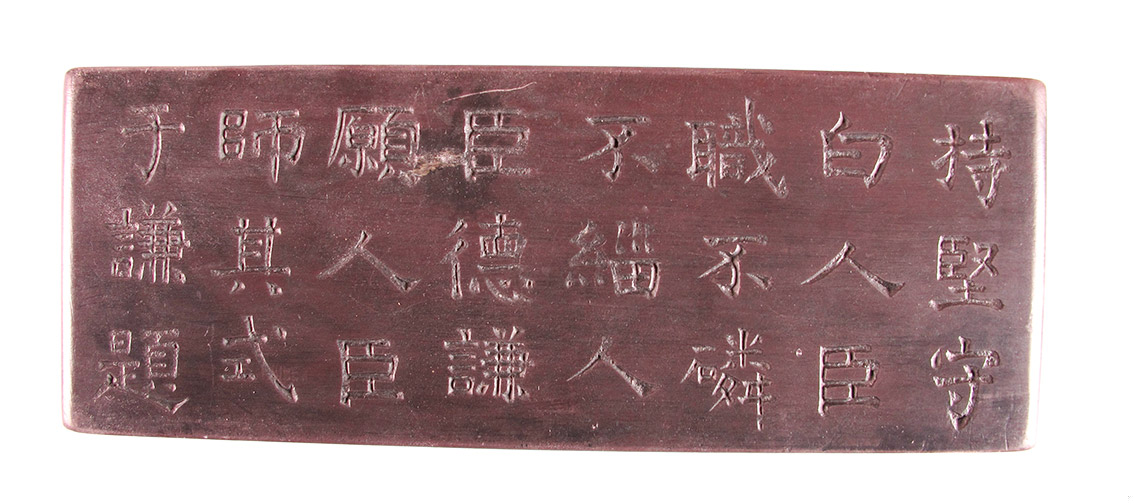 持堅守
白人臣
職不磷
不緇人
臣德謙
願人臣
師其式
于謙題